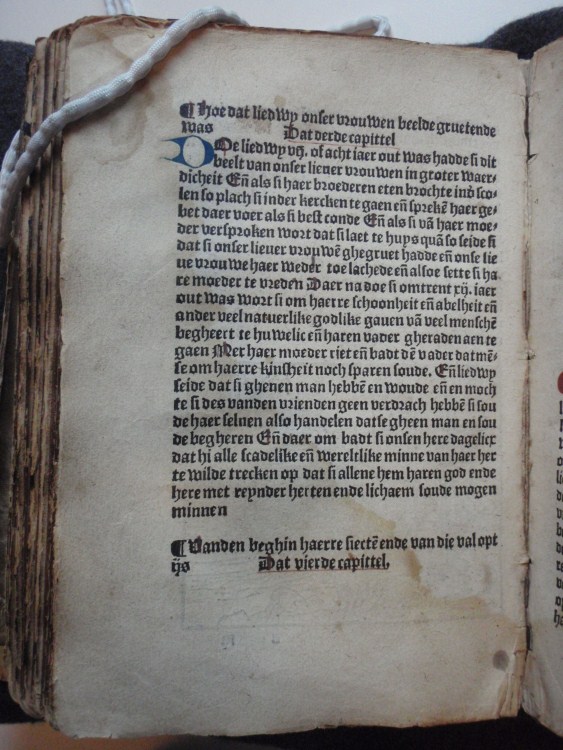 ¶ hoe dat liedwy onser vrouwen beelde gruetende
was Dat derde capittel
DOe liedwy vij. of acht iaer out was hadde si dit
beelt van onser lieuer vrouwen in groter waer-
dicheit Eñ als si haer broederen eten brochte inð sco-
len so plach si inder kercken te gaen eñ sprekē haer ge-
bet daer voer als si best conde Eñ als si vā haer moe-
der versproken wort dat si laet te huys quā so seide si
dat si onser lieuer vrouwē ghegruet hadde eñ onse lie
ue vrouwe haer weder toe lachede eñ alsoe sette si ha
re moeder te vreden Daer na doe si omtrent xij. iaer
out was wort si om haerre schoonheit eñ abelheit eñ
ander veel natuerlike godlike gauen vā veel menschē
begheert te huwelic eñ haren vader gheraden aen te
gaen Mer haer moeder riet eñ badt dē vader dat mē-
se om haerre kijnsheit noch sparen soude. Eñ liedwy
seide dat si ghenen man hebbē en woude eñ en moch
te si des vanden vrienden geen verdrach hebbē si sou
de haer seluen also handelen datse gheen man en sou
de begheren Eñ daer om badt si onsen here dagelicx
dat hi alle scadelike eñ wereltlike minne van haer her
te wilde trecken op dat si allene hem haren god ende
here met reynder herten ende lichaem soude mogen
minnen
¶ Vanden beghin haerre siectē ende van die val opt
ijs Dat vierde capittel.